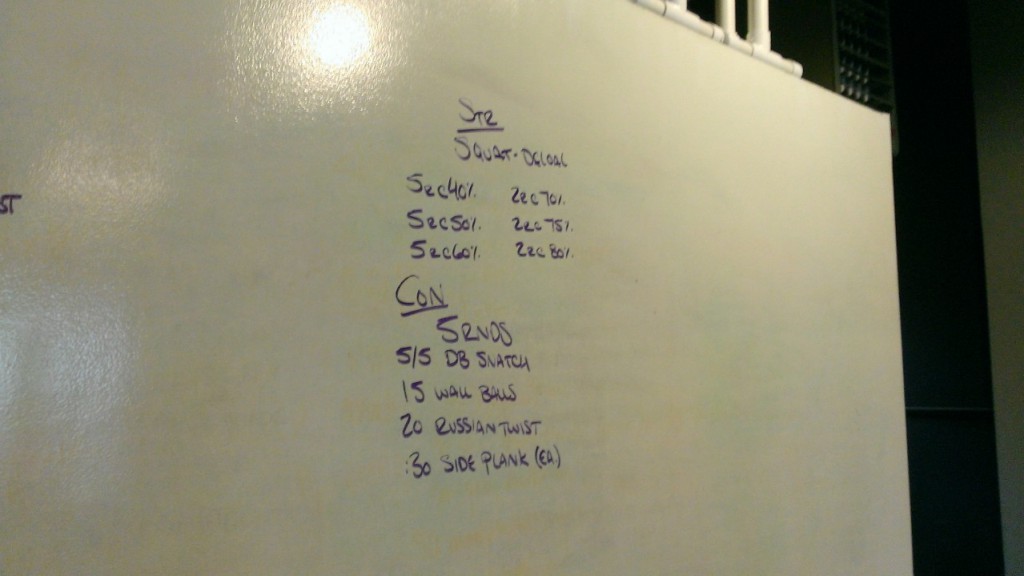 ST
STR
SQUAT - DELOAD
5R@40% 2R@70%
5R@50% 2R@75%
5R@60% 2R@80%
CON
5 RNDS
5/5 DB SNATCH
15 WALL BALLS
20 RUSSIAN TWIST
:30 SIDE PLANK (EA)